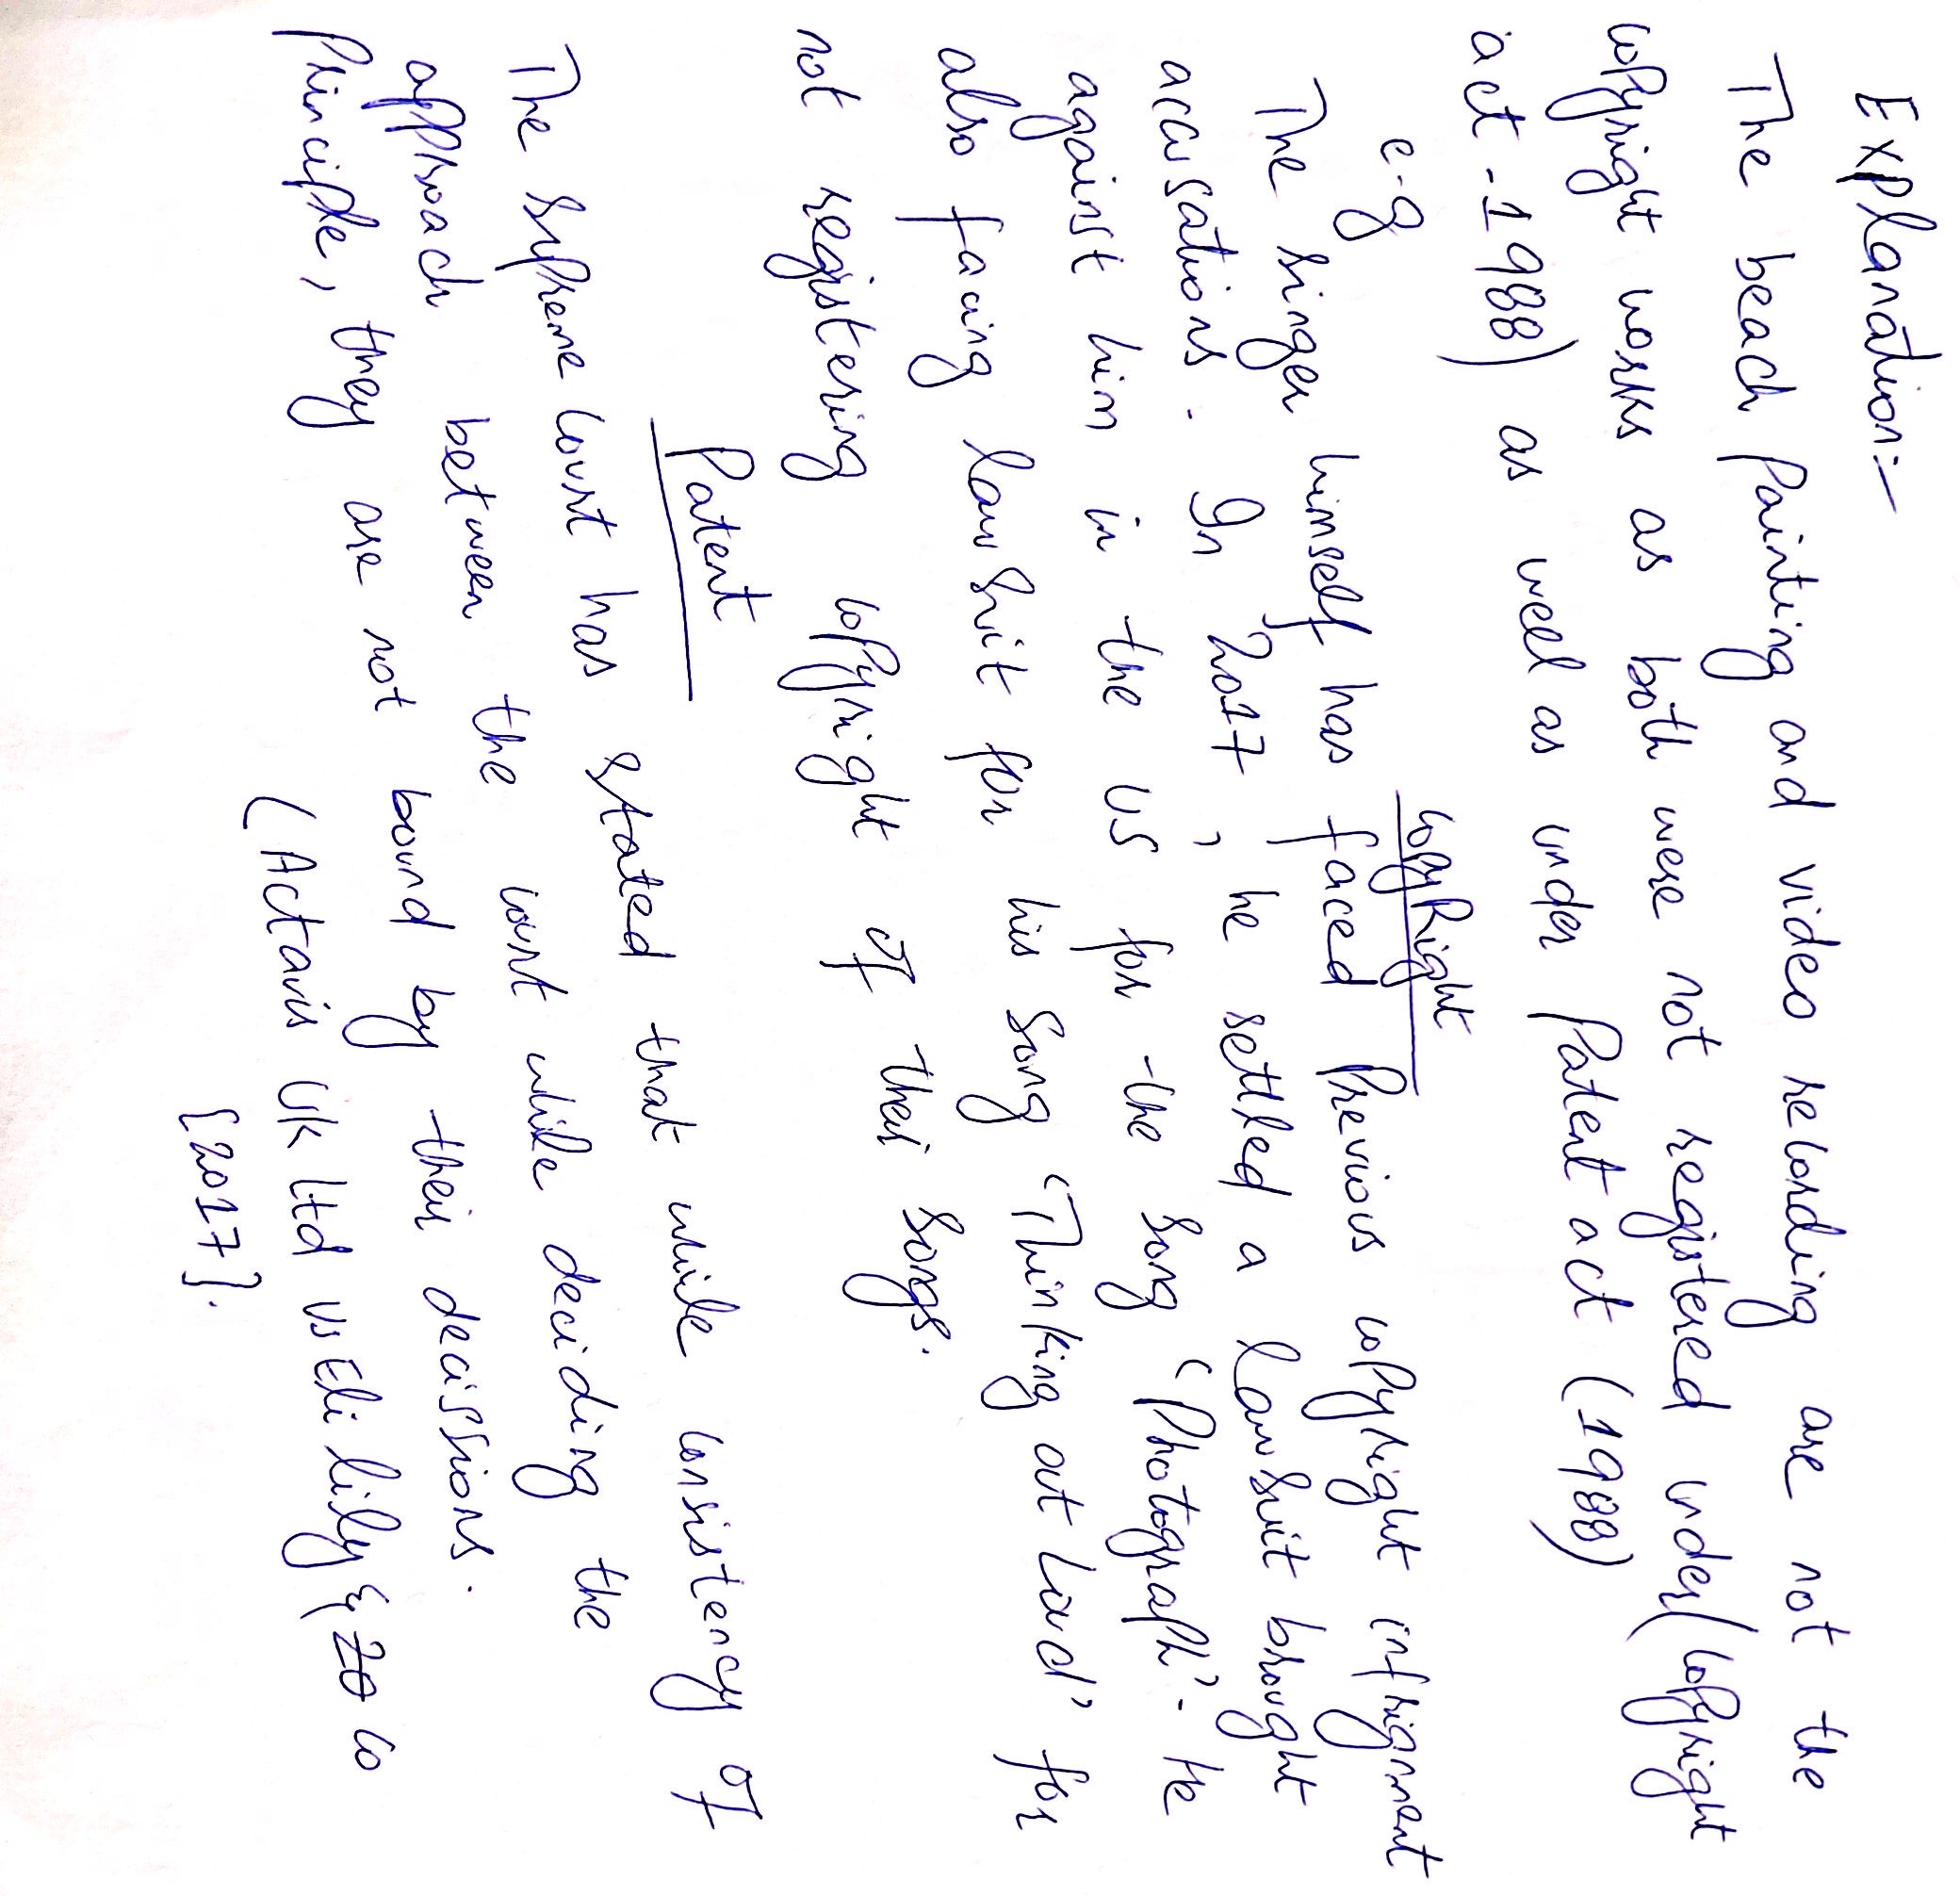 Explanation:-
The beach Painting and video recording are not the
copyright works as both were not registered under (copyright
act -1988) as well as under Patent act (1988)
e-g CopyRight
The singer himself has faced Previous copyright infrigment
accusations. In 2017, he settled a lawsuit brought
against him in the US for the song 'Photograph'. He
also facing lawsuit for his song 'Thinking out Loud' for
not registering copyright of their songs.
Patent
The supreme court has stated that while consistency of
approach between the court while deciding the
Principle, they are not bound by their decissions.
(Actavis UK Ltd vs Eli lily & 20 co
[2017].